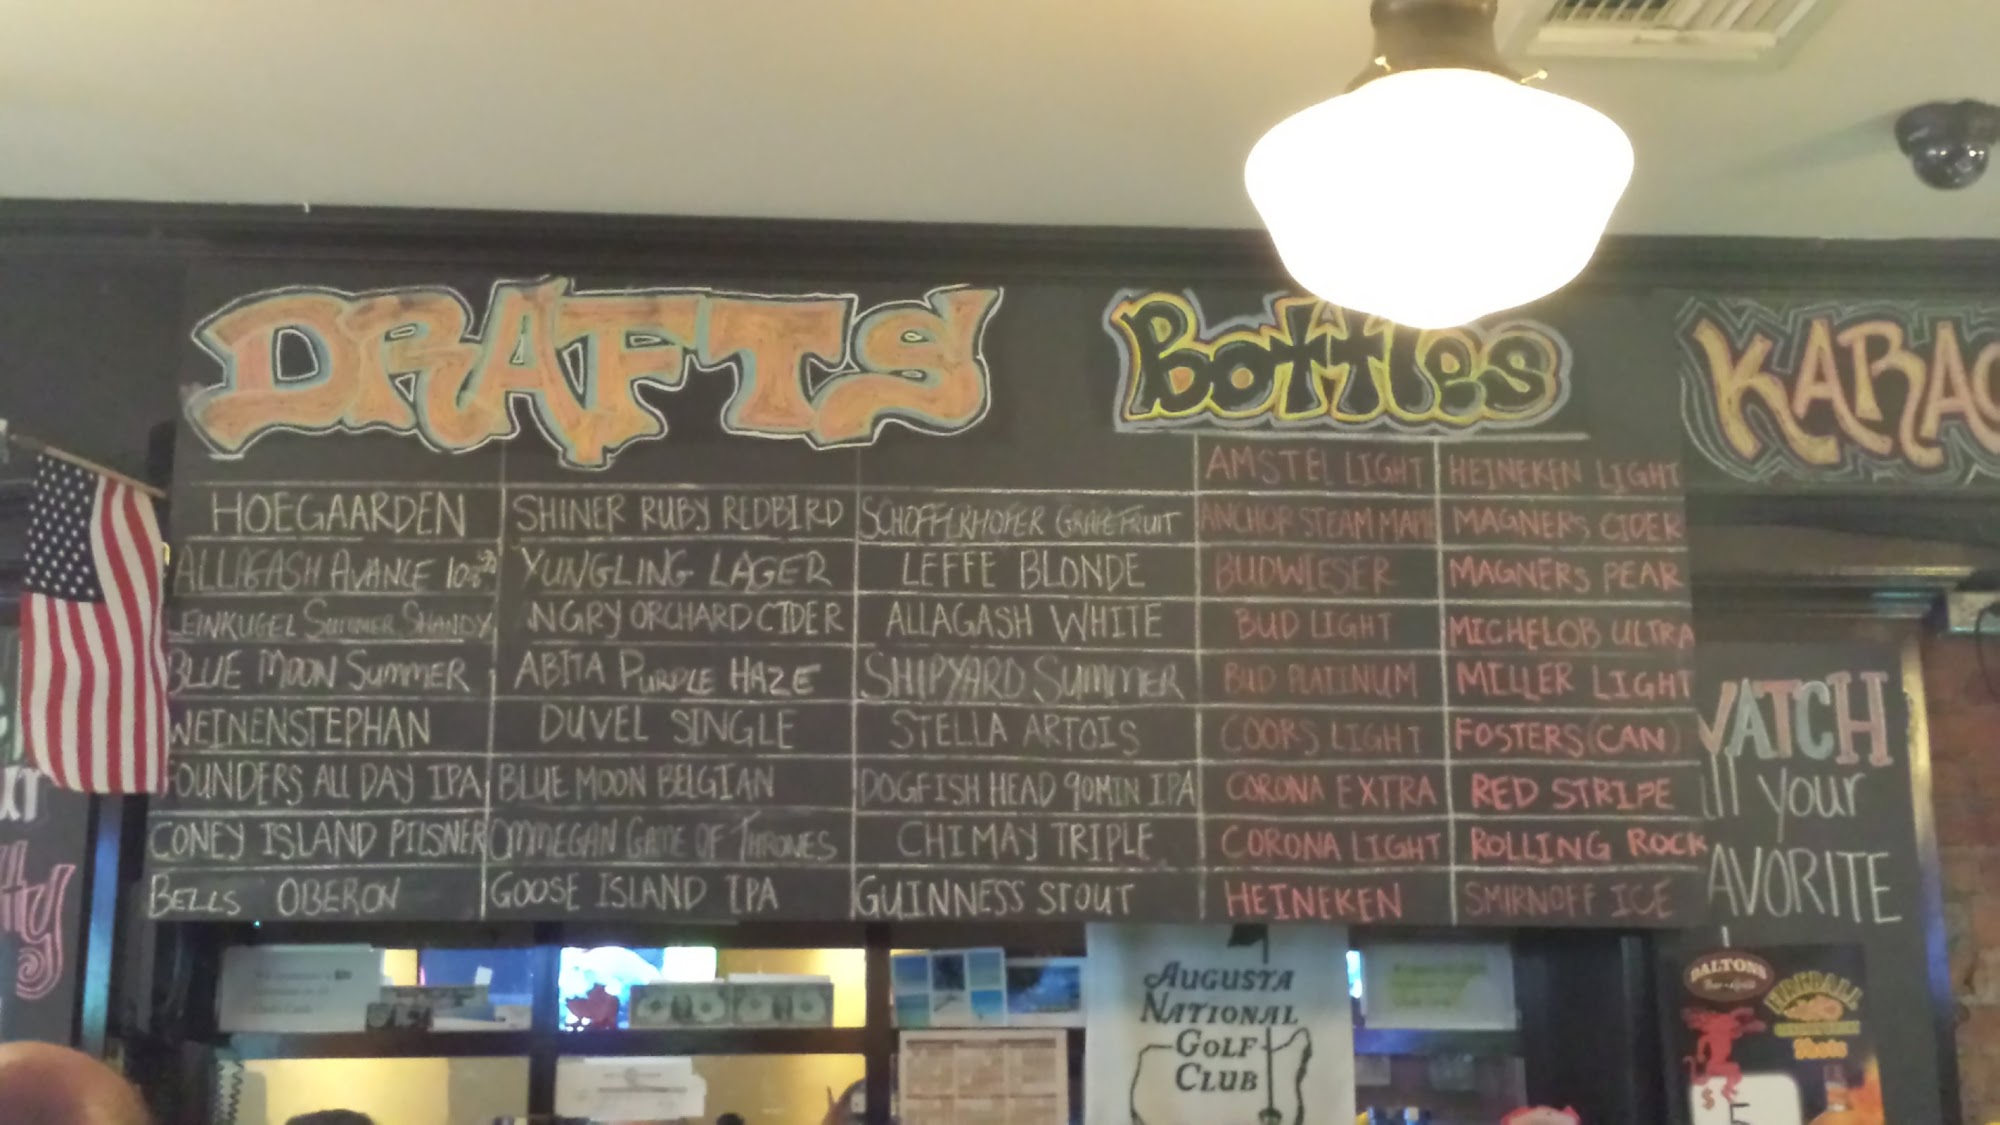 DRAFTS
HOEGAARDEN
ALLAGASH AVANCE 10.8%
LEINKUGEL SUMMER SHANDY
BLUE MOON SUMMER
WEINENSTEPHAN
FOUNDERS ALL DAY IPA
CONEY ISLAND PILSNER
BELLS OBERON
SHINER RUBY REDBIRD
YUNGLING LAGER
NGRY ORCHARD CIDER
ABITA PURPLE HAZE
DUVEL SINGLE
BLUE MOON BELGIAN
OMMEGAN GAME OF THRONES
GOOSE ISLAND IPA
SCHOFFERHOFER GRAPEFRUIT
LEFFE BLONDE
ALLAGASH WHITE
SHIPYARD SUMMER
STELLA ARTOIS
DOGFISH HEAD 90MIN IPA
CHIMAY TRIPLE
GUINNESS STOUT
Bottles
AMSTEL LIGHT
ANCHOR STEAM
BUDWIESER
BUD LIGHT
BUD PLATINUM
COORS LIGHT
CORONA EXTRA
CORONA LIGHT
HEINEKEN
HEINEKEN LIGHT
MAGNERS CIDER
MAGNERS PEAR
MICHELOB ULTRA
MILLER LIGHT
FOSTERS (CAN)
RED STRIPE
ROLLING ROCK
SMIRNOFF ICE
KARAO
WATCH
all your
FAVORITE
AUGUSTA
NATIONAL
GOLF
CLUB
DALTONS
FIREBALL
$5